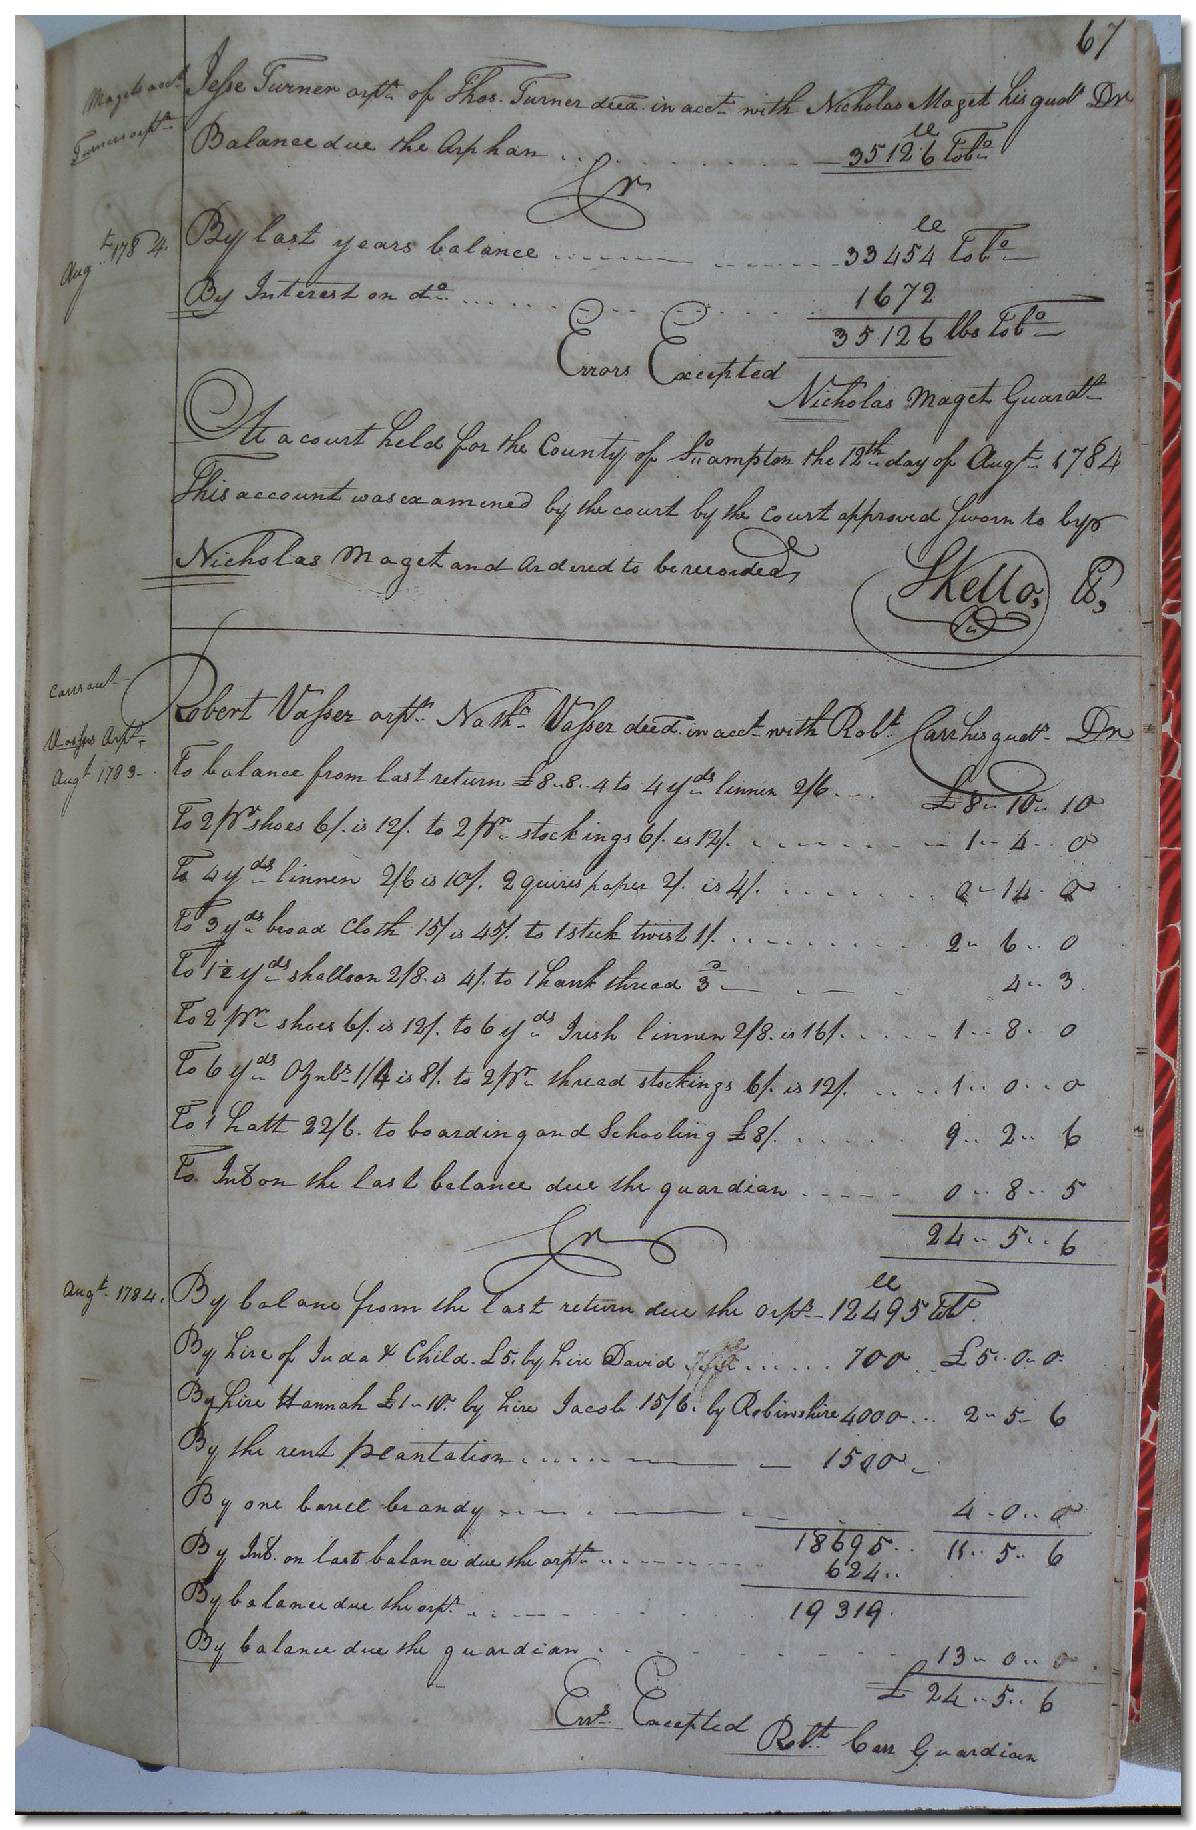 67
Magets acct.
Turners orpt.
Jesse Turner orpt. of Thos. Turner deed. in acct. with Nicholas Maget his guadt Dr
Balance due the Orphan ... 35126 ll Tobo.
Cr
Augt 1784.
By last years balance ... 33454 ll Tobo.
By Interest on do. ... 1672
35126 lbs Tobo
Errors Excepted
Nicholas Maget Guardn
At a court held for the County of So.ampton the 12th day of Augt. 1784
This account was examined by the court by the court approved sworn to by
Nicholas Maget and ordered to be recorded,
SKello, Ck,
Carrs acct.
Vassers Orpt.
Augt 1783.
Robert Vasser orpt. Nathl. Vasser deed. in acct. with Robt. Carr his guadt. Dr
To balance from last return £8..8..4 to 4 yds linnen 2/6 ... £8..10..10
To 2 pr shoes 6/. is 12/. to 2 pr. stockings 6/. is 12/. ... 1..4..0
To 4 yds linnen 2/6 is 10/. 2 quires paper 2/. is 4/. ... 0..14..0
To 3 yds broad Cloth 15/ is 45/. to 1 stick twist 1/. ... 2..6..0
To 1½ yds shalloon 2/8. is 4/. to 1 hank thread 3d ... 4..3
To 2 pr. shoes 6/. is 12/. to 6 yds Irish linnen 2/8. is 16/. ... 1..8..0
To 6 yds Oznbs. 1/4 is 8/. to 2 pr. thread stockings 6/. is 12/. ... 1..0..0
To 1 hatt 22/6. to boarding and Schooling £8/. ... 9..2..6
To Int. on the last balance due the guardian ... 0..8..5
24..5..6
Cr
Augt. 1784.
By balane from the last return due the orpt. 12495 ll Tobo.
By hire of Juda & Child. £5. by hire David ... 700 £5..0..0
By hire Hannah £1..10. by hire Jacob 15/6. by Robins hire 4000 .. 2..5..6
By the rent plantation ... 1500
By one barrel brandy ... 4..0..0
18695.. 11..5..6
By Int. on last balance due the orpt. ... 624..
By balance due the orpt. ... 19319.
By balance due the guardian ... 13..0..0
£24..5..6
Errs. Excepted
Robt. Carr Guardian